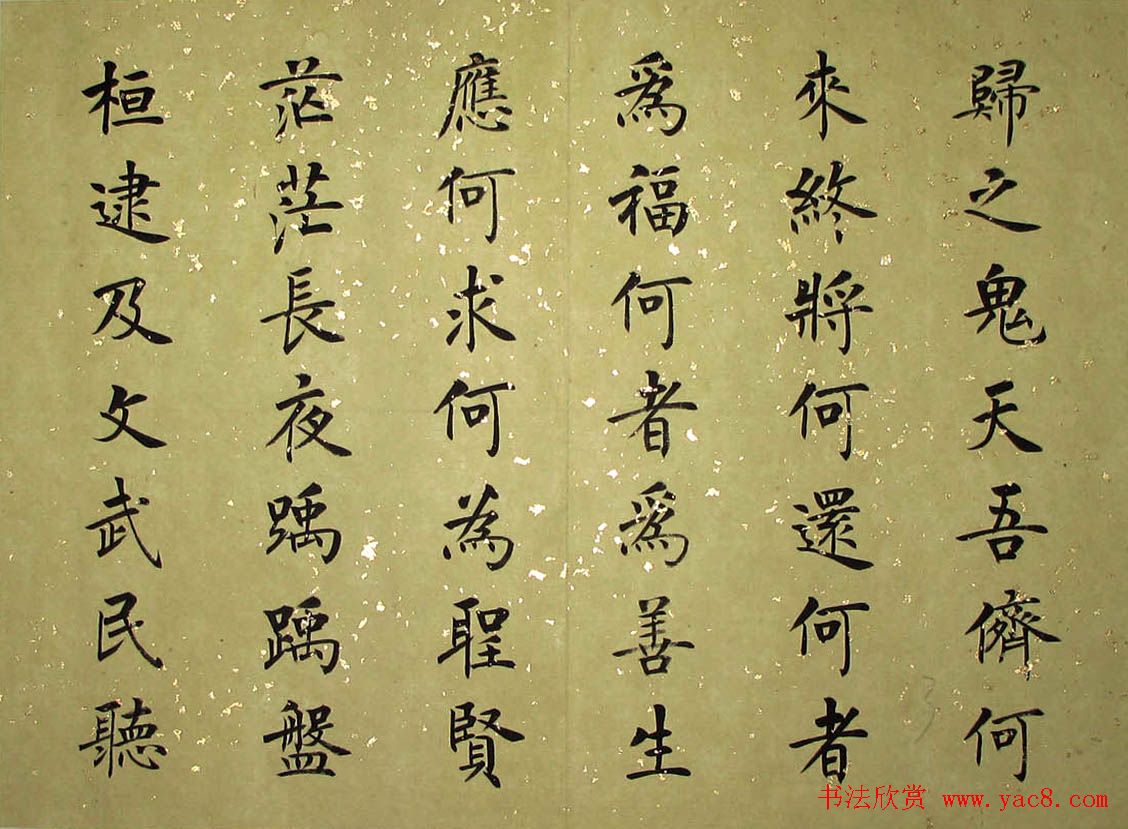 歸之鬼天吾儕何
來終將何還何者
為福何者為善生
應何求何為聖賢
茫茫長夜踽踽盤
桓逮及文武民聽
书法欣赏 www.yac8.com